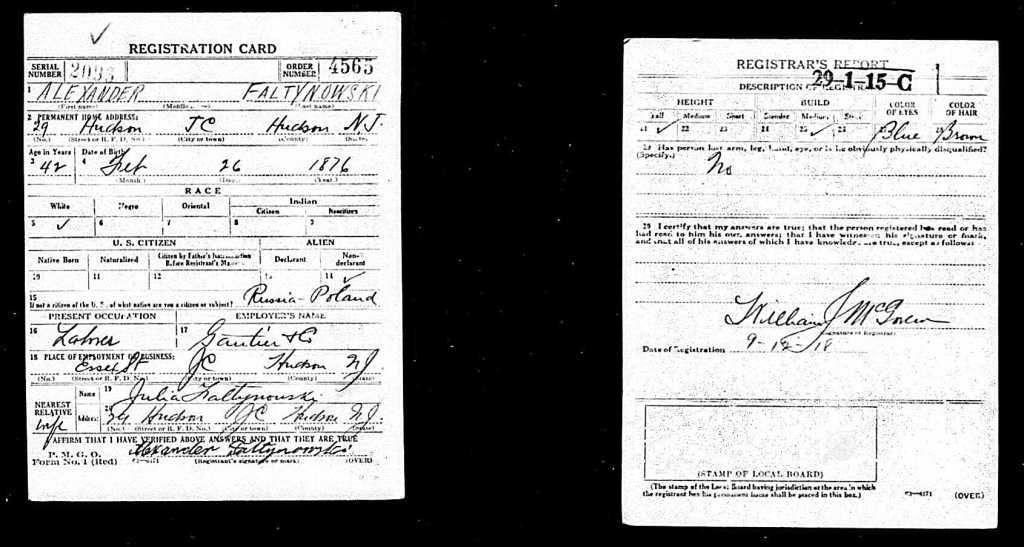 REGISTRATION CARD
SERIAL NUMBER ORDER NUMBER 4565
1 ALEXANDER FALTYNOWSKI
(First name) (Last name)
2 PERMANENT HOME ADDRESS:
29 Hudson JC Hudson N.J.
(No.) (Street or R. F. D. No.) (City or town) (County) (State)
Age in Years Date of Birth
3 42 4 Feb 26 1876
(Month.) (Day.) (Year.)
RACE
White Negro Oriental Indian
Citizen Noncitizen
5 ✓ 6 7 8 9
U. S. CITIZEN ALIEN
Native Born Naturalized Citizen by Father's Naturalization Before Registrant's Majority Declarant Non-declarant
10 11 12 13 14 ✓
15 Russia-Poland
If not a citizen of the U. S., of what nation are you a citizen or subject?
PRESENT OCCUPATION EMPLOYER'S NAME
16 Laborer 17 Gautier & Co
18 PLACE OF EMPLOYMENT OR BUSINESS:
Essex St JC Hudson NJ
(No.) (Street or R. F. D. No.) (City or town) (County) (State)
NEAREST RELATIVE Name 19 Julia Faltynowski
wife Address 20 29 Hudson JC Hudson N.J.
(No.) (Street or R. F. D. No.) (City or town) (County) (State)
I AFFIRM THAT I HAVE VERIFIED ABOVE ANSWERS AND THAT THEY ARE TRUE
P. M. G. O.
Form No. 1 (Red) Alexander Faltynowski
(Registrant's signature or mark) (OVER)
REGISTRAR'S REPORT
29-1-15-C
DESCRIPTION OF REGISTRANT
HEIGHT BUILD COLOR OF EYES COLOR OF HAIR
Tall Medium Short Slender Medium Stout
21 ✓ 22 23 24 25 ✓ 26 27 Blue 28 Brown
29 Has person lost arm, leg, hand, eye, or is he obviously physically disqualified?
(Specify.) No
30 I certify that my answers are true; that the person registered has read or has had read to him his own answers; that I have witnessed his signature or mark, and that all of his answers of which I have knowledge are true, except as follows:
William J McGovern
(Signature of Registrar)
Date of Registration 9-12-18
(STAMP OF LOCAL BOARD)
(The stamp of the Local Board having jurisdiction of the area in which the registrant has his permanent home shall be placed in this box.)
(OVER)